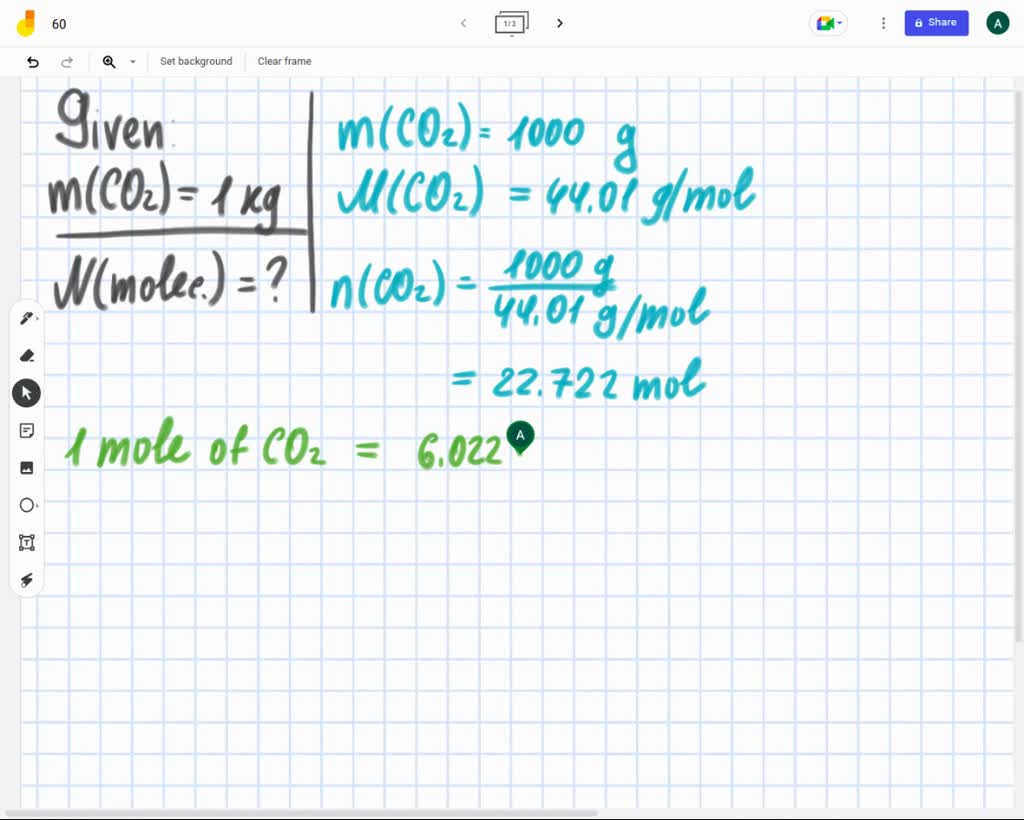 60
1/3
Share
A
Set background
Clear frame
Given:
m(CO₂) = 1 kg
N(molec.) = ?
m(CO₂) = 1000 g
M(CO₂) = 44.01 g/mol
n(CO₂) = 1000 g / 44.01 g/mol
= 22.722 mol
1 mole of CO₂ = 6.022
A